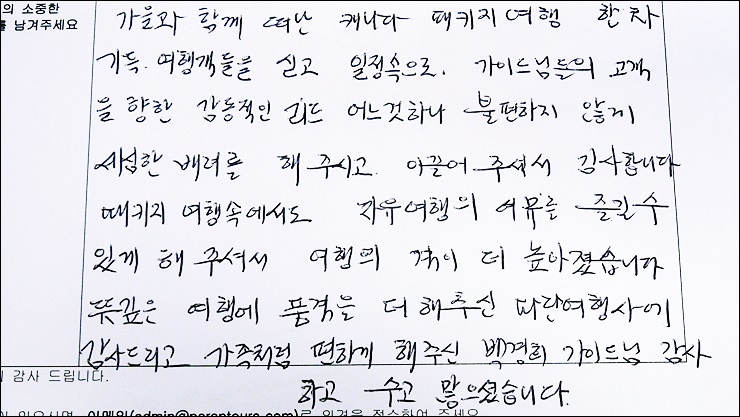 의 소중한
를 남겨주세요
가을과 함께 떠난 캐나다 패키지여행 한차
가득. 여행객들을 싣고 일정속으로. 가이드님들의 고객
을 향한 감동적인 리드 어느것하나 불편하지 않게
세심한 배려를 해 주시고 이끌어 주셔서 감사합니다
패키지 여행속에서도 자유여행의 여유를 즐길수
있게 해 주셔서 여행의 격이 더 높아졌습니다
뜻깊은 여행에 품격을 더 해주신 파란여행사에
감사드리고 가족처럼 편하게 해주신 백경희 가이드님 감사
하고 수고 많으셨습니다.
감사 드립니다.
있으시면 이메일(admin@parantours.com)로 의견을 접수하여 주세요